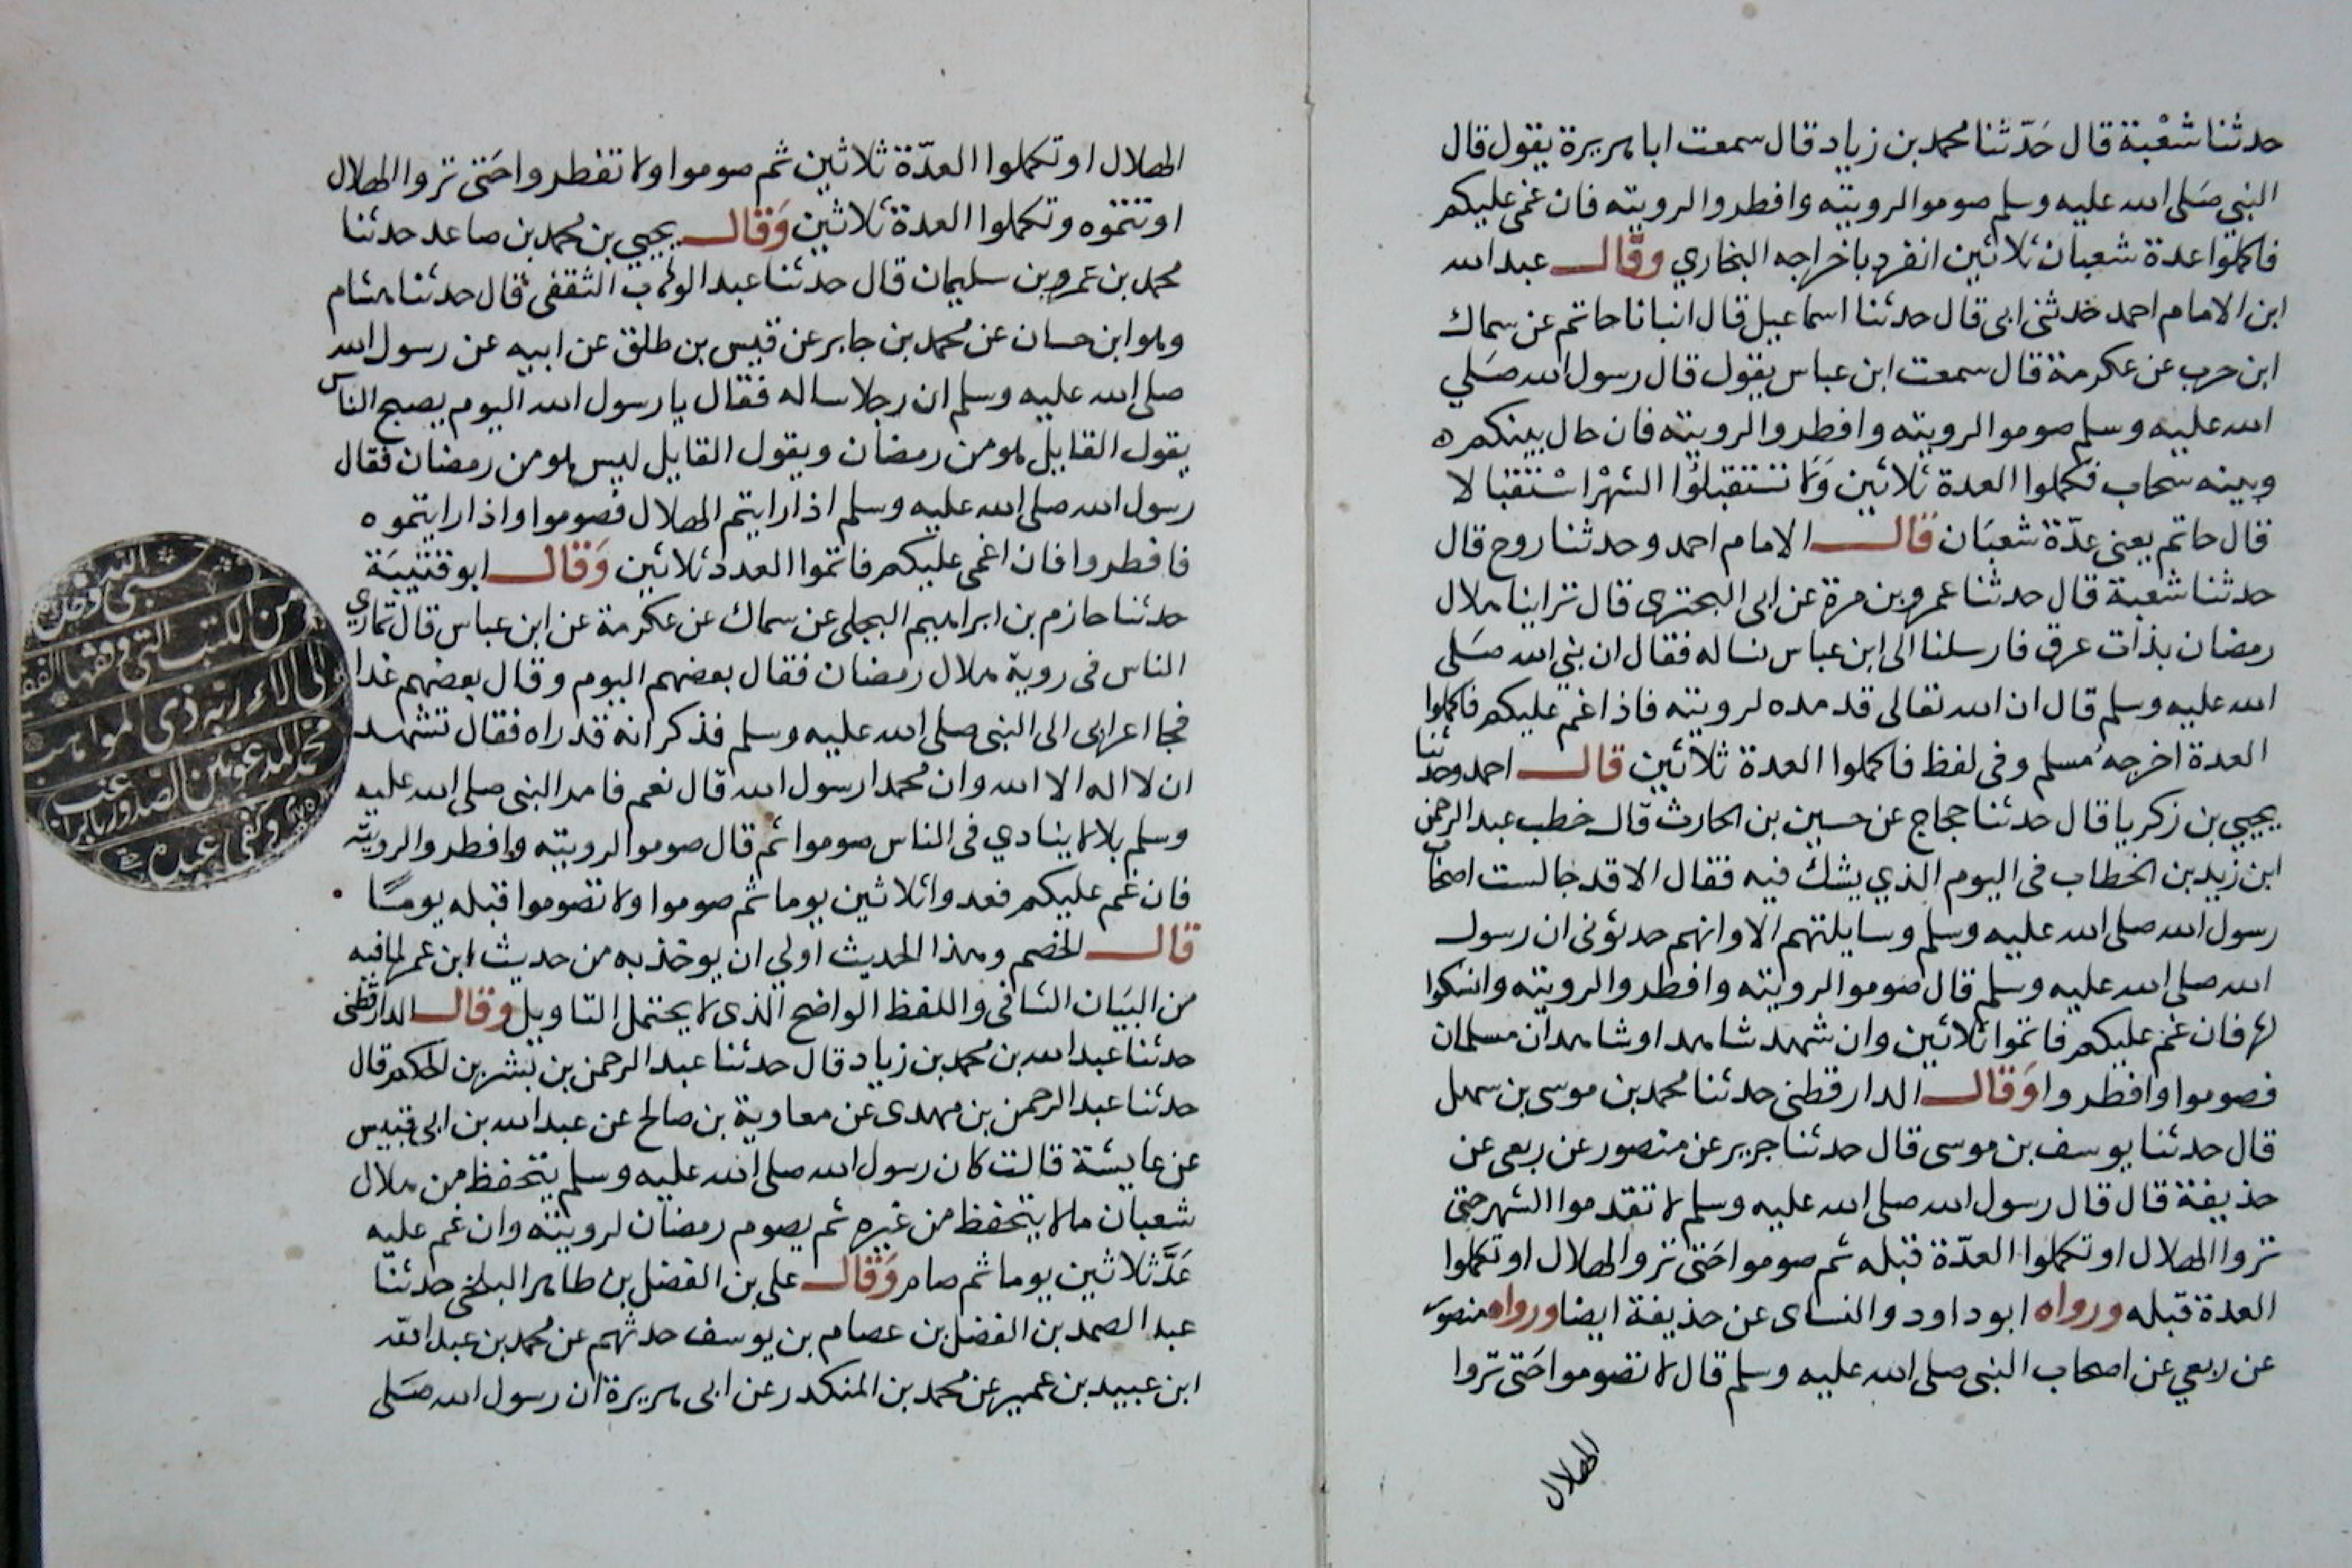 حدثنا شعْبة قال حَدّثنا محمد بن زياد قال سمعت ابا هريرة يقول قال
النبي صَلى الله عليه وسلم صوموا لرويته وافطروا لرويته فان غمى عليكم
فاكملوا عدة شعبان ثلاثين انفرد باخراجه البخاري وقال عبد الله
ابن الامام احمد حدثنى ابى قال حدثنا اسماعيل قال انبانا حاتم عن سماك
ابن حرب عن عكرمة قال سمعت ابن عباس يقول قال رسول الله صَلي
الله عليه وسلم صوموا لرويته وافطروا لرويته فان حال بينكم ه
وبينه سحاب فكملوا العدة ثلاثين وَلا تستقبلوُا الشهْر اسْتقبالا
قال حاتم يعنى عدّة شعبَان قال الامام احمد وحدثنا روح قال
حدثنا شعبة قال حدثنا عمرو بن مرة عن ابى البحترى قال تراينا هلال
رمضان بذات عرق فارسلنا الى ابن عباس نساله فقال ان نبى الله صَلى
الله عليه وسلم قال ان الله تعالى قد مده لرويته فاذا غم عليكم فاكملوا
العدة اخرجه مُسلم وفى لفظ فاكملوا العدة ثلاثين قال احمد وحدثنا
يحيي بن زكريا قال حدثنا حجاج عن حسين بن الحارث قال خطب عبد الرحمن
ابن زيد بن الخطاب فى اليوم الذي يشك فيه فقال الا قد جالست اصحاب
رسول الله صلى الله عليه وسلم وسايلتهم الا وانهم حدثونى ان رسول
الله صلى الله عليه وسلم قال صوموا لرويته وافطروا لرويته وانسكوا
لها فان غم عليكم فاتموا ثلاثين وان شهد شاهد او شاهدان مسلمان
فصوموا وافطروا وَقال الدارقطنى حدثنا محمد بن موسى بن سهل
قال حدثنا يوسف بن موسى قال حدثنا جرير عن منصور عن ربعى عن
حذيفة قال قال رسول الله صلى الله عليه وسلم لا تقدموا الشهر حتى
تروا الهلال او تكملوا العدّة قبله ثم صوموا حَتى تروا الهلال او تكملوا
العدة قبله ورواه ابو داود والنساى عن حذيفة ايضا ورواه منصور
عن ربعي عن اصحاب النبى صلى الله عليه وسلم قال لا تصوموا حَتى تروا
الهلال
الهلال او تكملوا العدّة ثلاثين ثم صوموا ولا تفطروا حَتى تروا الهلال
او تتموه وتكملوا العدة ثلاثين وَقال يحيي بن محمد بن صاعد حدثنا
محمد بن عمرو بن سليمان قال حدثنا عبد الوهاب الثقفى قال حدثنا هشام
وهو ابن حسان عن محمد بن جابر عن قيس بن طلق عن ابيه عن رسول الله
صلى الله عليه وسلم ان رجلا ساله فقال يا رسول الله اليوم يصبح الناس
يقول القايل هو من رمضان ويقول القايل ليس هو من رمضان فقال
رسول الله صلى الله عليه وسلم اذا رايتم الهلال فصوموا واذا رايتموه
فافطروا فان اغمى عليكم فاتموا العدد ثلاثين وَقال ابو قتيبَة
حدثنا حازم بن ابراهيم البجلى عن سماك عن عكرمة عن ابن عباس قال تمارى
الناس فى روية هلال رمضان فقال بعضهم اليوم وقال بعضهم غدا
فجا اعرابى الى النبى صلى الله عليه وسلم فذكر انه قد راه فقال تشهد
ان لا اله الا الله وان محمدا رسول الله قال نعم فامر النبى صلى الله عليه
وسلم بلالا ينادي فى الناس صوموا ثم قال صوموا لرويته وافطروا لرويته
فان غم عليكم فعدوا ثلاثين يوما ثم صوموا ولا تصوموا قبله يومًا
قال الخصم وهذا الحديث اولي ان يوخذ به من حديث ابن عمر لما فيه
من البيَان الشافى واللفظ الواضح الذى لا يحتمل التاويل وقال الدارقطنى
حدثنا عبد الله بن محمد بن زياد قال حدثنا عبد الرحمن بن بشر بن الحكم قال
حدثنا عبد الرحمن بن مهدى عن معاوية بن صالح عن عبد الله بن ابى قيس
عن عايشة قالت كان رسول الله صلى الله عليه وسلم يتحفظ من هلال
شعبان ما لا يتحفظ من غيره ثم يصوم رمضان لرويته وان غم عليه
عَدَّ ثلاثين يوما ثم صام وَقال على بن الفضل بن طاهر البلخى حدثنا
عبد الصمد بن الفضل بن عصام بن يوسف حدثهم عن محمد بن عبد الله
ابن عبيد بن عمير عن محمد بن المنكدر عن ابى هريرة ان رسول الله صَلى
من الكتب التى وقفها الفقير
الى الاء ربه ذى المواهب
محمد المدعو بين الصدور